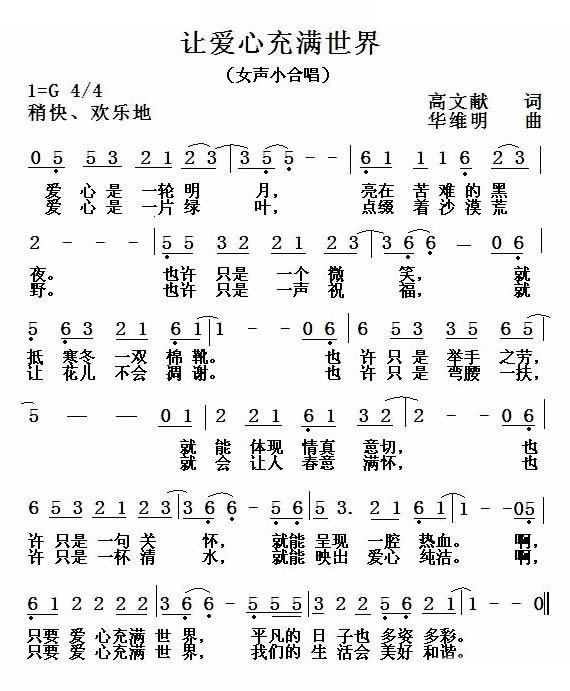 让爱心充满世界
（女声小合唱）
1=G 4/4
稍快、欢乐地
高文献 词
华维明 曲
0 5 5 3 2 1 2 3 | 3 5 5 - - | 6 1 1 1 6 2 3 |
爱 心 是 一轮 明 月， 亮在 苦 难 的 黑
爱 心 是 一片 绿 叶， 点缀 着 沙 漠 荒
2 - - - | 5 5 3 2 2 1 2 3 | 3 6 6 - - 0 6 |
夜。 也许 只是 一个 微 笑， 就
野。 也许 只是 一声 祝 福， 就
5 6 3 2 1 6 1 | 1 - - 0 6 | 5 5 3 3 5 6 5 |
抵 寒冬 一双 棉 靴。 也 许 只是 举手 之劳，
让 花儿 不会 凋 谢。 也 许 只是 弯腰 一扶，
5 — — 0 1 | 2 2 1 6 1 3 2 | 2 - - 0 6 |
就 能 体现 情真 意切， 也
就 会 让人 春意 满怀， 也
6 5 3 2 1 2 3 | 3 6 6 - 5 | 5 3. 2 1 6 1 | 1 - - 0 5 |
许 只是 一句 关 怀， 就能 呈现 一腔 热血。 啊，
许 只是 一杯 清 水， 就能 映出 爱心 纯洁。 啊，
6 1 2 2 2 2 | 3 6 6 - 5 5 5 | 3 2 2 5 6 2 1 | 1 - - 0 ‖
只要 爱 心充满 世 界， 平凡的 日 子也 多姿 多彩。
只要 爱 心充满 世 界， 我们的 生 活会 美好 和谐。